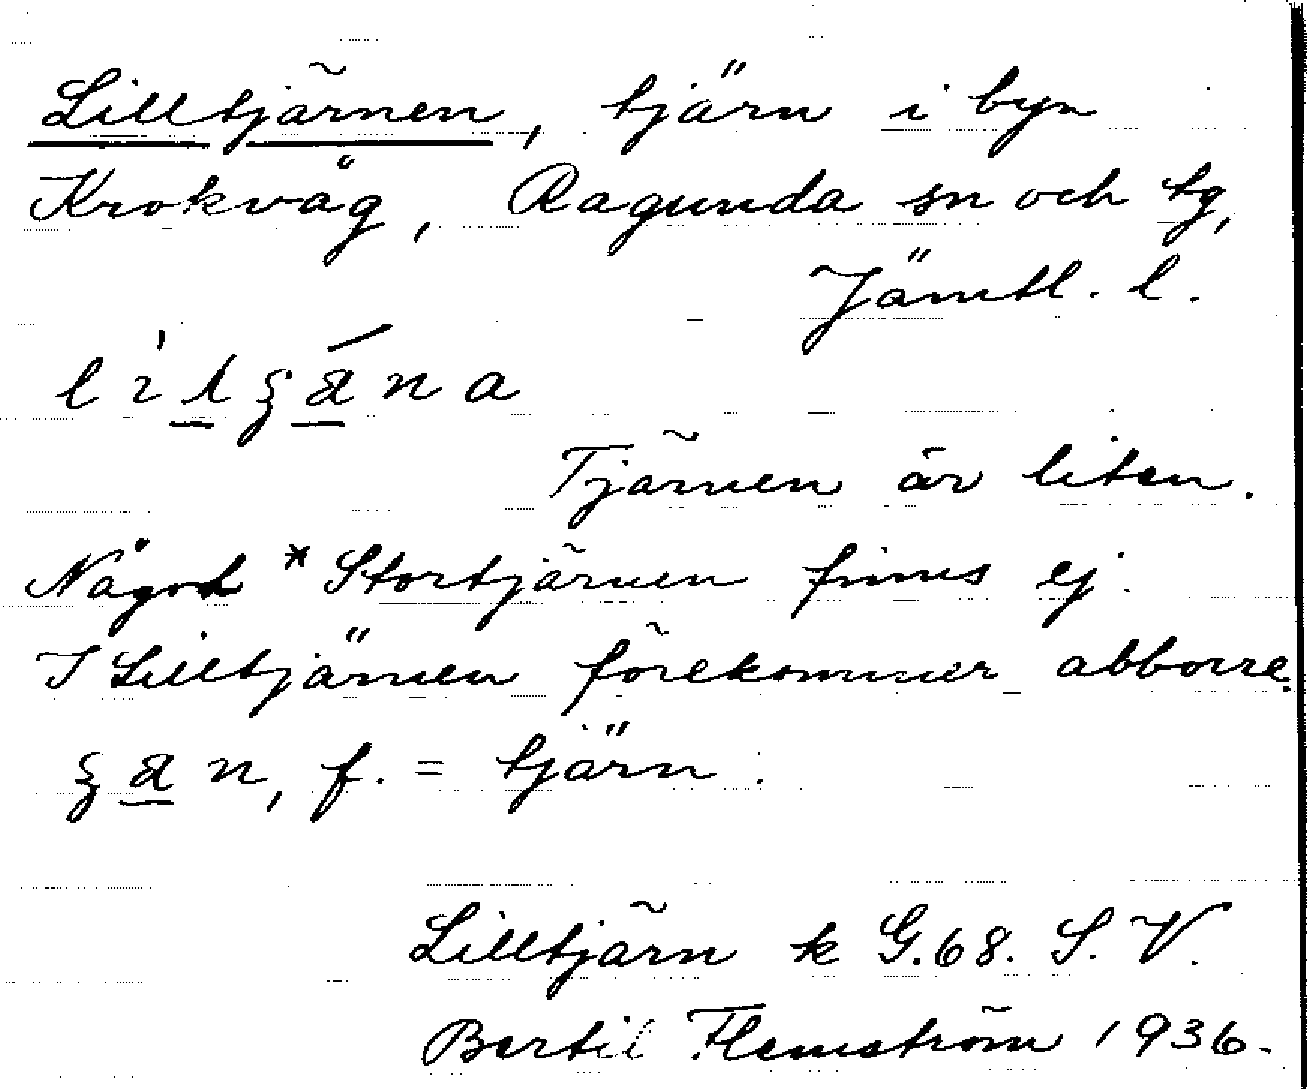 Lilltjärnen, tjärn i byn
Krokvåg, Ragunda sn och tg,
Jämtl. l.
Tjärnen är liten.
Något *Stortjärnen finns ej.
I Lilltjärnen förekommer abborre.
f. = tjärn.
Lilltjärn k G.68. S. V.
Bertil Flemström 1936.